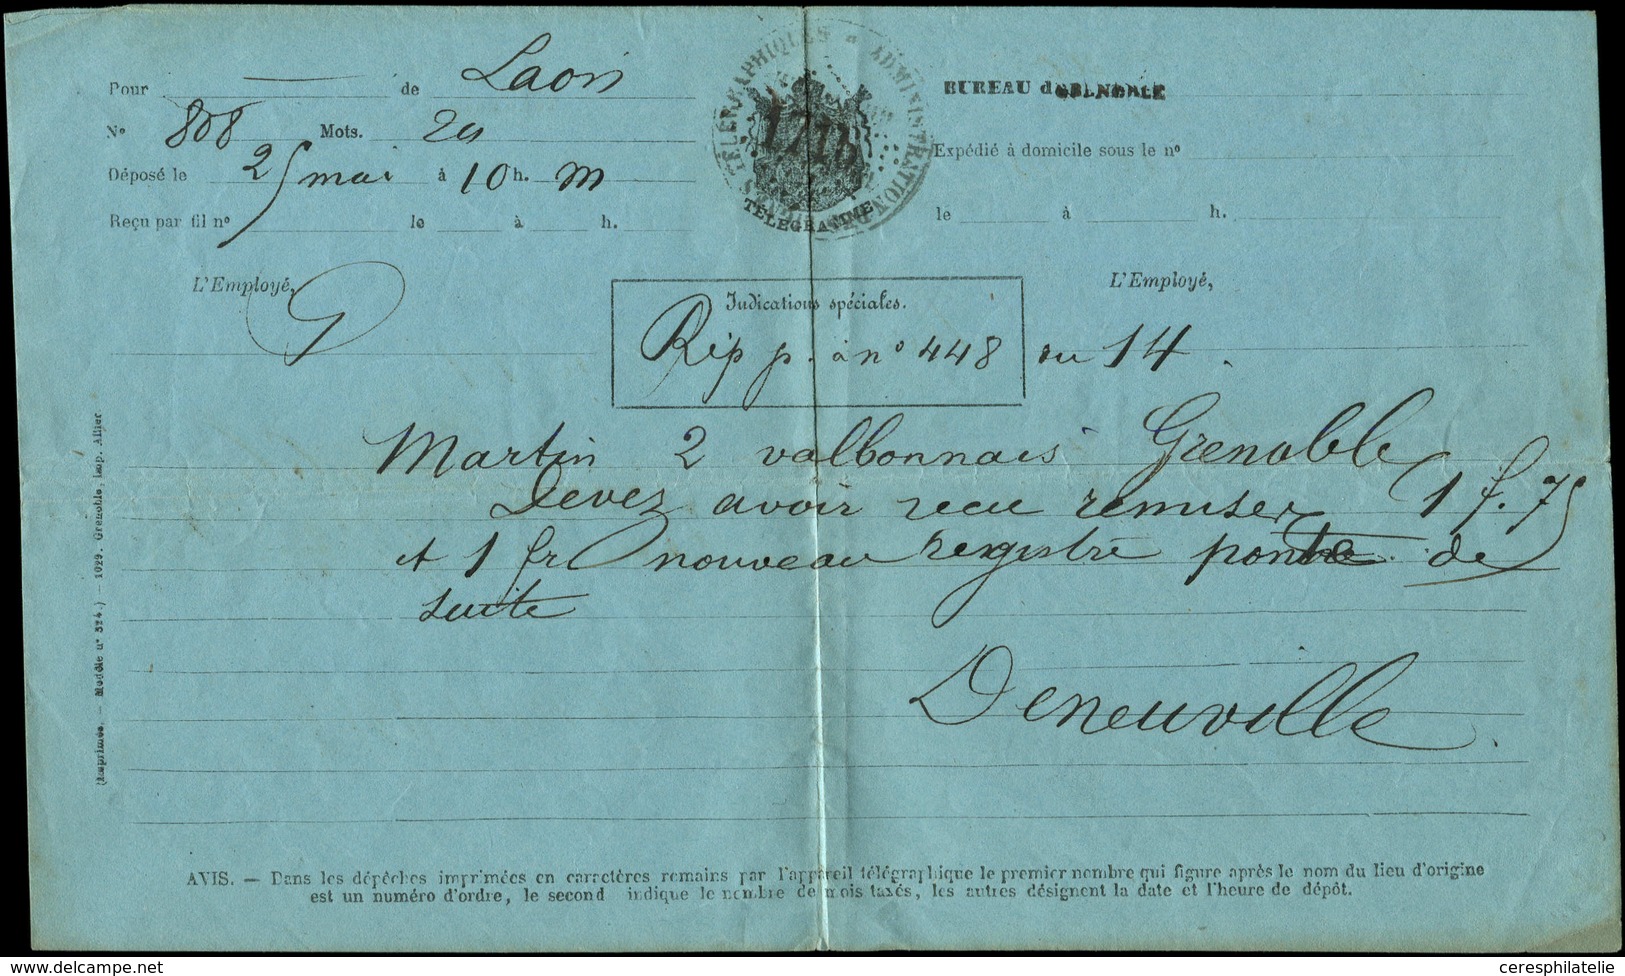 Pour de Laon
N° 808 Mots.
Déposé le 25 mai à 10 h. m
Reçu par fil n° le à h.
L'Employé,
TÉLÉGRAPHIQUES * ADMINISTRATION
TÉLÉGRAMME
BUREAU de GRENOBLE
Expédié à domicile sous le n°
le à h.
L'Employé,
Indications spéciales.
Rep p. à n° 448 ou 14.
Martin 2 valbonnais Grenoble
Devez avoir recu remiser 1 f. 75
et 1 fr nouveau registre de
suite
Deneuville
(Imprimés. — Modèle n° 324.) — 1029. Grenoble, imp. Allier
AVIS. — Dans les dépêches imprimées en caractères romains par l'appareil télégraphique le premier nombre qui figure après le nom du lieu d'origine
est un numéro d'ordre, le second indique le nombre de mots taxés, les autres désignent la date et l'heure de dépôt.
© www.delcampe.net
ceresphilatelie